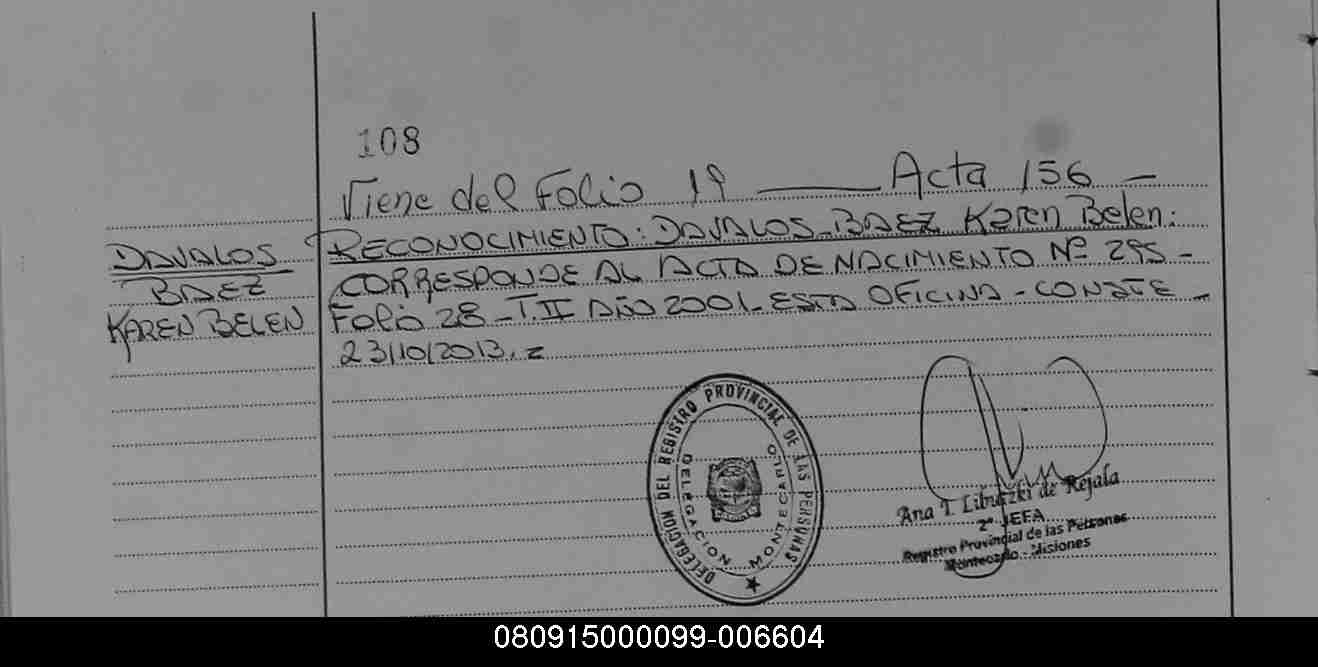 108
Viene del Folio 19 — Acta 156 —
DAVALOS
BAEZ
KAREN BELEN
RECONOCIMIENTO: DAVALOS BAEZ Karen Belen:
CORRESPONDE AL ACTA DE NACIMIENTO Nº 295 -
Folio 28 - T.II AÑO 2001 - ESTA OFICINA - CONSTE -
23/10/2013.
DELEGACION DEL REGISTRO PROVINCIAL DE LAS PERSONAS
DELEGACION MONTECARLO
Ana T. de Rejala
2º JEFA
Registro Provincial de las Personas
Montecarlo - Misiones
080915000099-006604